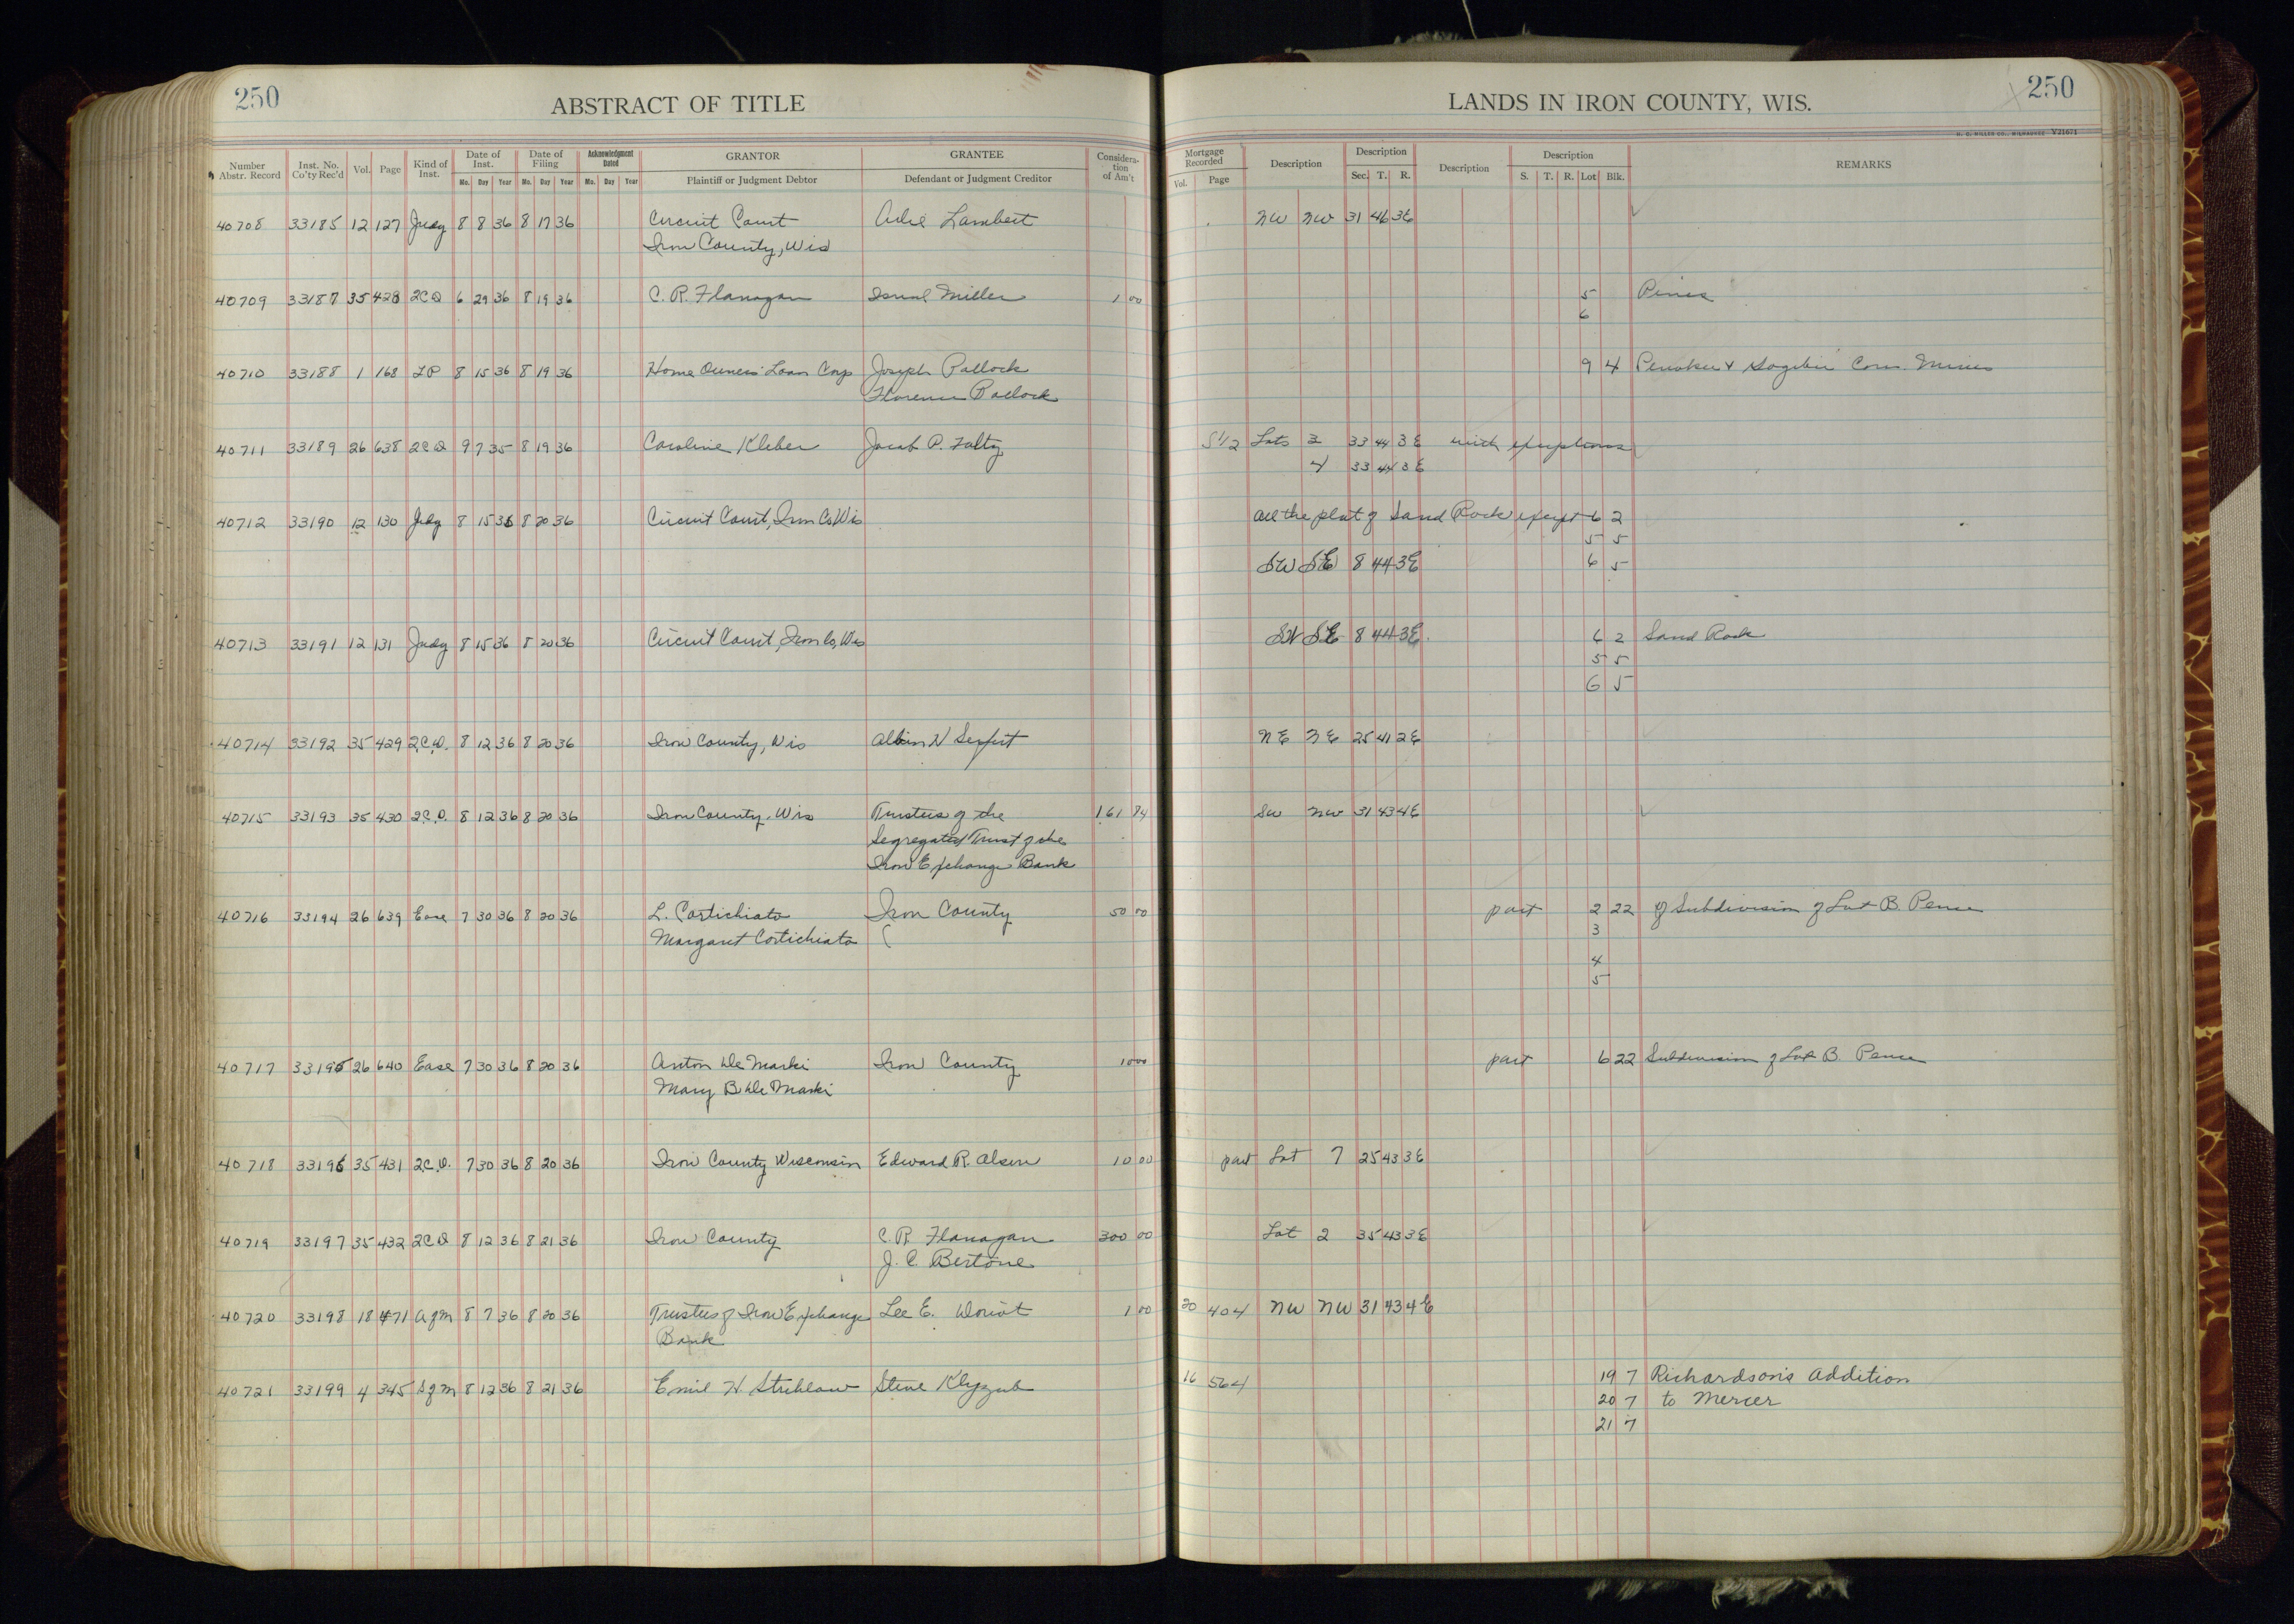 250
ABSTRACT OF TITLE
LANDS IN IRON COUNTY, WIS.
250
H. C. MILLER CO., MILWAUKEE V21671
Number Abstr. Record | Inst. No. Co'ty Rec'd | Vol. | Page | Kind of Inst. | Date of Inst. Mo. Day Year | Date of Filing Mo. Day Year | Acknowledgment Dated Mo. Day Year | GRANTOR Plaintiff or Judgment Debtor | GRANTEE Defendant or Judgment Creditor | Consideration of Am't | Mortgage Recorded Vol. Page | Description | Description Sec. T. R. | Description | Description S. T. R. Lot Blk. | REMARKS
40708 33185 12 127 Judg 8 8 36 8 17 36 Circuit Court Lambert NW NW 31 46 3E
Iron County, Wis
40709 33187 35 428 2CD 6 29 36 8 19 36 C. R. Flanagan Miller 1 00 5
6
40710 33188 1 168 LP 8 15 36 8 19 36 Home Owners Loan Corp Joseph Pallock 9 4
Florence Pallock
40711 33189 26 638 2CD 9 7 35 8 19 36 Caroline Kleber Jacob P. S1/2 Lots 3 33 44 3E with exceptions
4 33 44 3E
40712 33190 12 130 Judg 8 15 36 8 20 36 Circuit Court, Iron Co Wis All the plat of Sand Rock except 6 2
5 5
SW SE 8 44 3E 6 5
40713 33191 12 131 Judg 8 15 36 8 20 36 Circuit Court, Iron Co, Wis SW SE 8 44 3E 6 2 Sand Rock
5 5
6 5
40714 33192 35 429 2C.D. 8 12 36 8 20 36 Iron County, Wis NE NE 25 41 2E
40715 33193 35 430 2C.D. 8 12 36 8 20 36 Iron County, Wis Trustees of the 161 84 SW NW 31 43 4E
Segregated Trust of the
Iron Exchange Bank
40716 33194 26 639 Ease 7 30 36 8 20 36 L. Cortichiato Iron County 50 00 part 2 22 of Subdivision of Lot B. Pence
Margaret Cortichiato 3
4
5
40717 33195 26 640 Ease 7 30 36 8 20 36 Anton De Marki Iron County 10 00 part 6 22 Subdivision of Lot B. Pence
Mary B De Marki
40718 33196 35 431 2C.D. 7 30 36 8 20 36 Iron County Wisconsin Edward R. Olsen 10 00 part Lot 7 25 43 3E
40719 33197 35 432 2CD 8 12 36 8 21 36 Iron County C. R. Flanagan 300 00 Lot 2 35 43 3E
J. C. Bertone
40720 33198 18 471 Agm 8 7 36 8 20 36 Trustees of Iron Exchange Lee E. 1 00 20 404 NW NW 31 43 4E
Bank
40721 33199 4 345 8 12 36 8 21 36 Emil H. Strehlow Steve Klyzub 16 564 19 7 Richardson's Addition
20 7 to Mercer
21 7